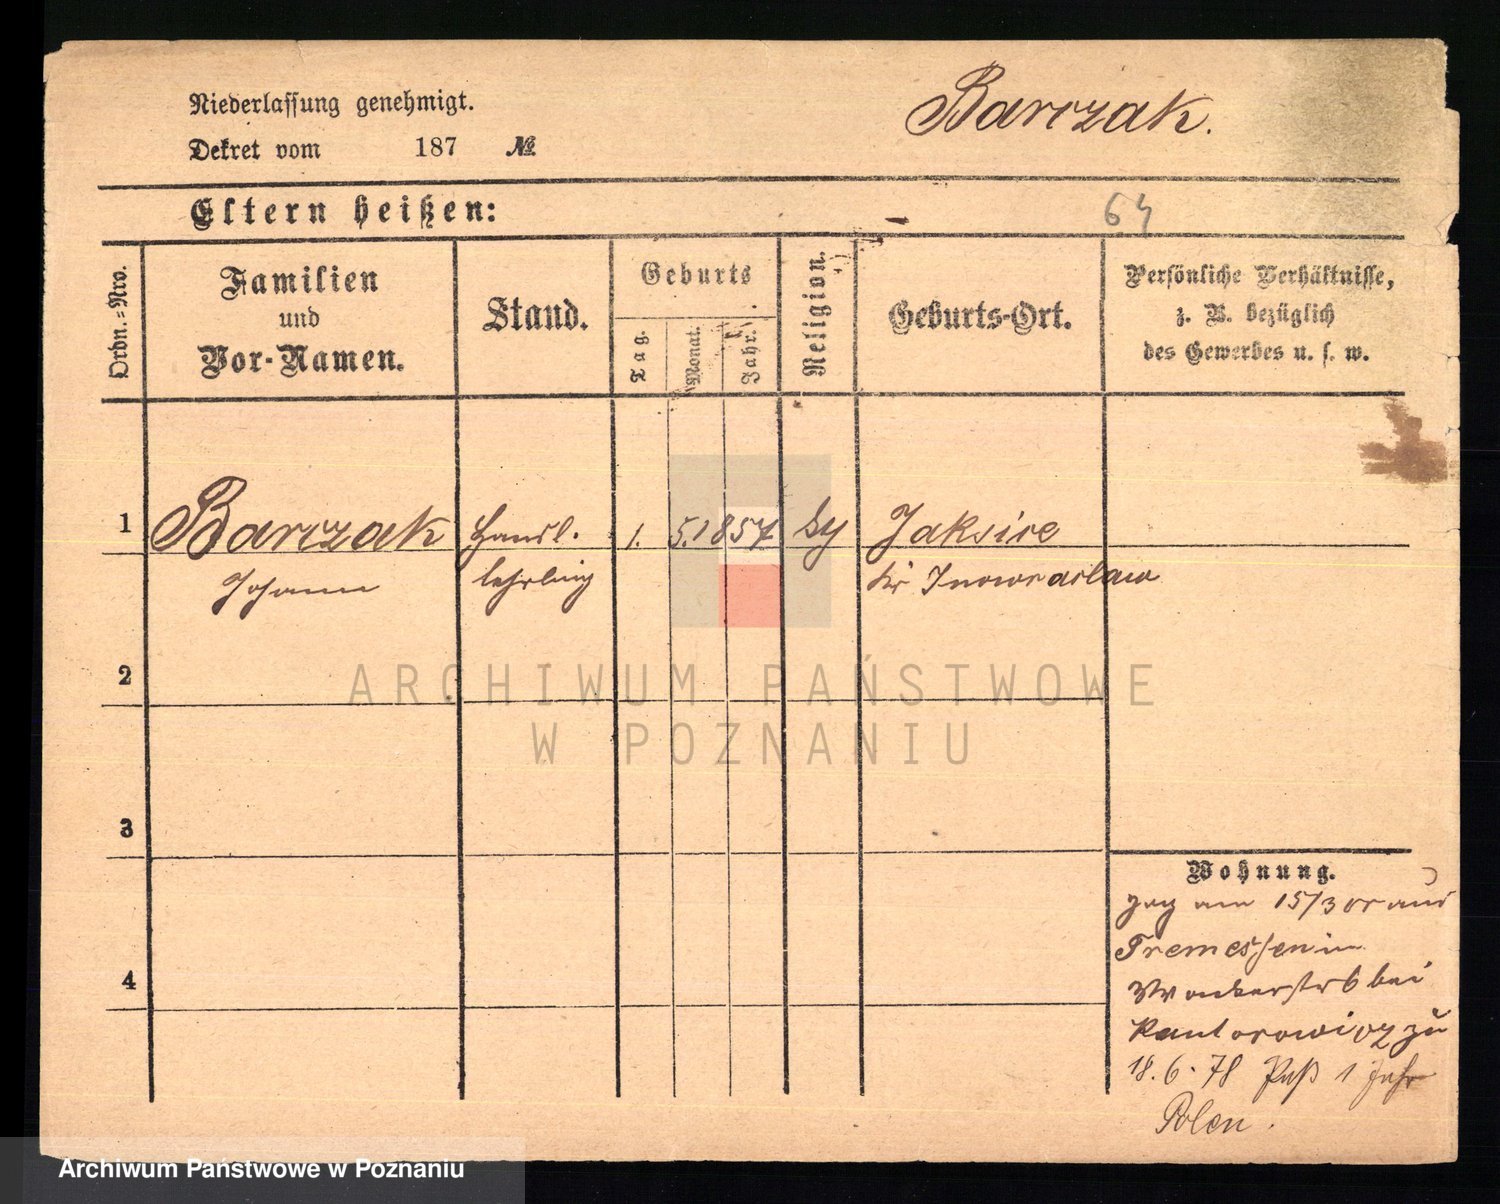 Niederlassung genehmigt.
Dekret vom 187 №
Barczak.
Eltern heißen:
64
Ordn.-Nro.
Familien
und
Vor-Namen.
Stand.
Geburts
Tag.
Monat.
Jahr.
Religion.
Geburts-Ort.
Persönliche Verhältnisse,
z. B. bezüglich
des Gewerbes u. s. w.
1 Barczak Handl. 1. 5. 1857 Jaksice
Johann lehrling Kr Inowraclaw
2
3
4
Wohnung.
zog am 15/3 aus
Tremessen in
bei
Kantorowicz zu
18. 6. 78 Paß 1 Jahr
Polen.
ARCHIWUM PAŃSTWOWE
W POZNANIU
Archiwum Państwowe w Poznaniu